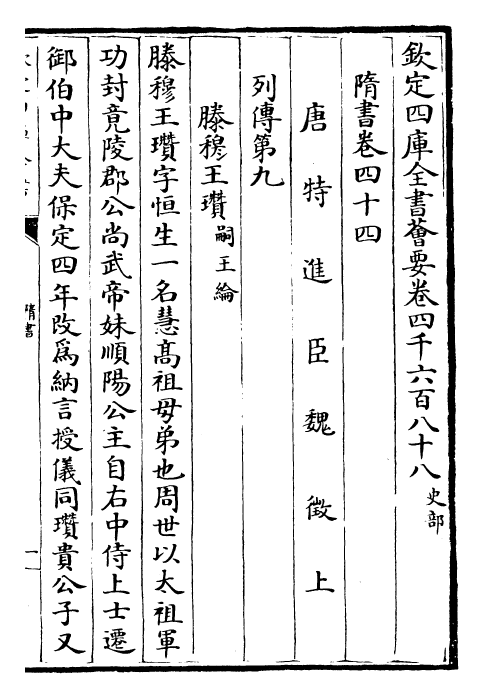 欽定四庫全書薈要卷四千六百八十八史部
隋書卷四十四
唐特進臣魏徵上
列傳第九
滕穆王瓚嗣王綸
滕穆王瓚字恒生一名慧髙祖母弟也周世以太祖軍
功封竟陵郡公尚武帝妹順陽公主自右中侍上士遷
御伯中大夫保定四年改爲納言授儀同瓚貴公子又
隋書
一